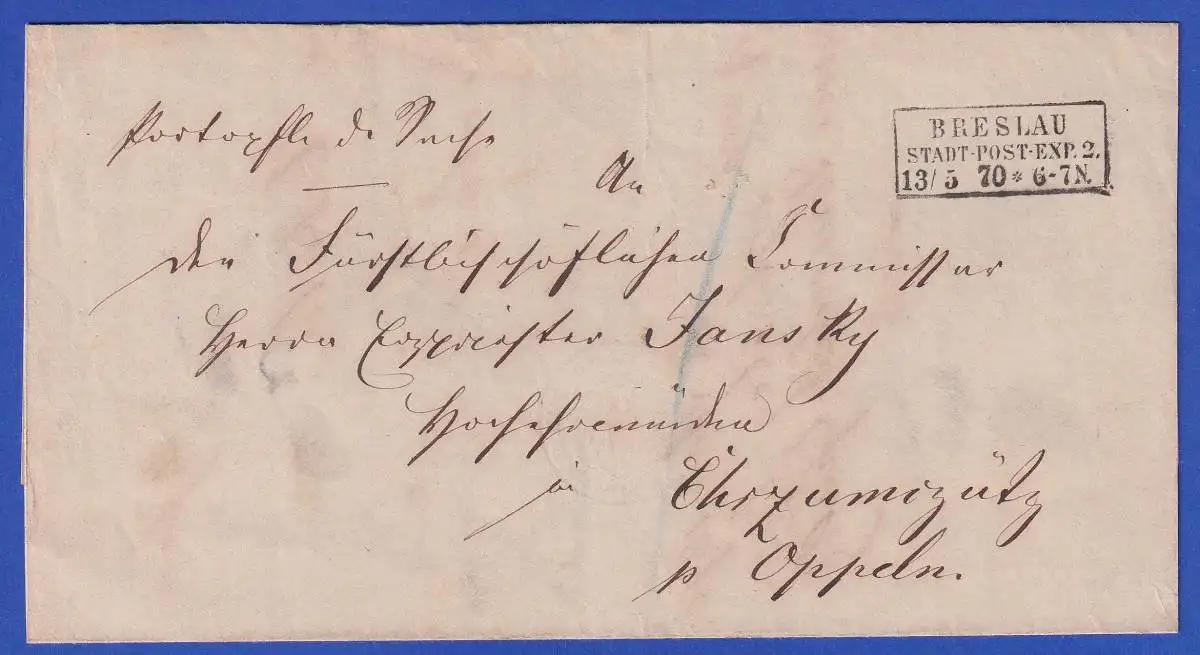 Portopfl. d. Sache
BRESLAU
STADT-POST-EXP. 2.
13/5 70 * 6-7N.
An
den Fürstbischöflichen Commissar
Herrn Erzpriester Jansky
Hochehrwürden
in Chrzumczütz
p Oppeln.